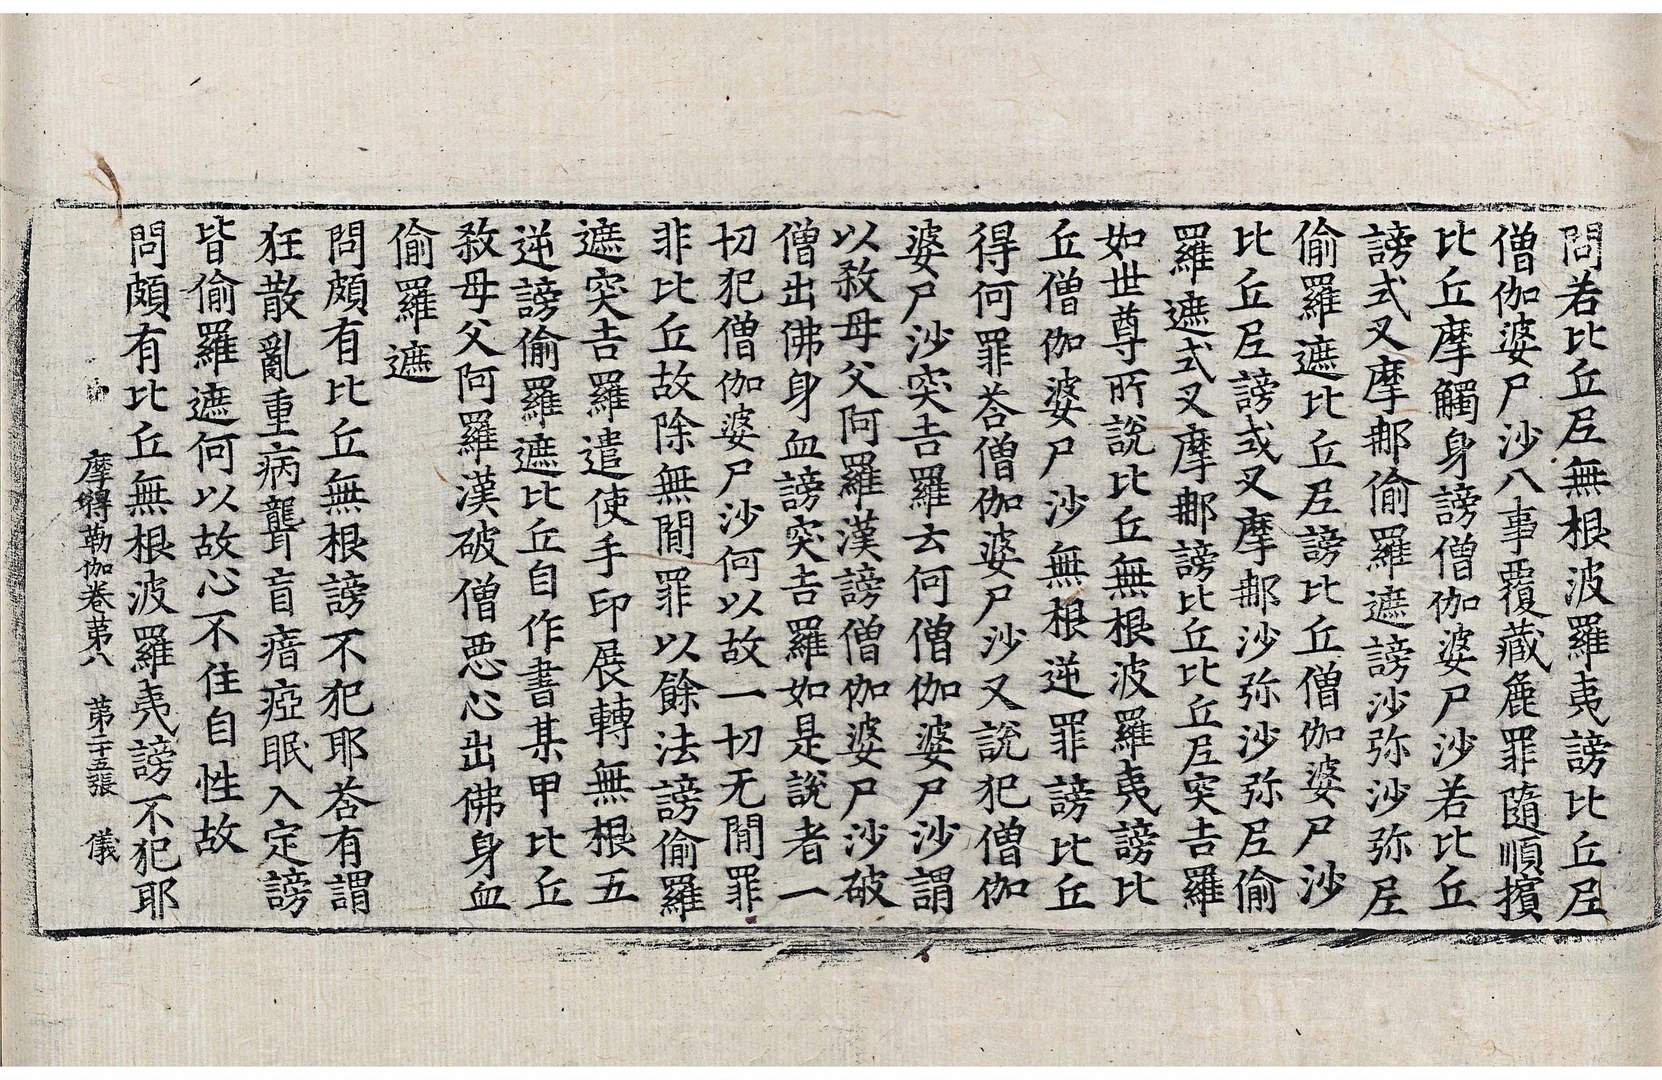 問若比丘尼無根波羅夷謗比丘尼
僧伽婆尸沙八事覆藏麁罪隨順擯
比丘摩觸身謗僧伽婆尸沙若比丘
謗式叉摩那偷羅遮謗沙弥沙弥尼
偷羅遮比丘尼謗比丘僧伽婆尸沙
比丘尼謗式叉摩那沙弥沙弥尼偷
羅遮式叉摩那謗比丘比丘尼突吉羅
如世尊所說比丘無根波羅夷謗比
丘僧伽婆尸沙無根逆罪謗比丘
得何罪荅僧伽婆尸沙又說犯僧伽
婆尸沙突吉羅云何僧伽婆尸沙謂
以殺母父阿羅漢謗僧伽婆尸沙破
僧出佛身血謗突吉羅如是說者一
切犯僧伽婆尸沙何以故一切无閒罪
非比丘故除無閒罪以餘法謗偷羅
遮突吉羅遣使手印展轉無根五
逆謗偷羅遮比丘自作書某甲比丘
殺母父阿羅漢破僧惡心出佛身血
偷羅遮
問頗有比丘無根謗不犯耶荅有謂
狂散亂重病聾盲瘖瘂眠入定謗
皆偷羅遮何以故心不住自性故
摩得勒伽卷第八 第二十五張 儀
問頗有比丘無根波羅夷謗不犯耶